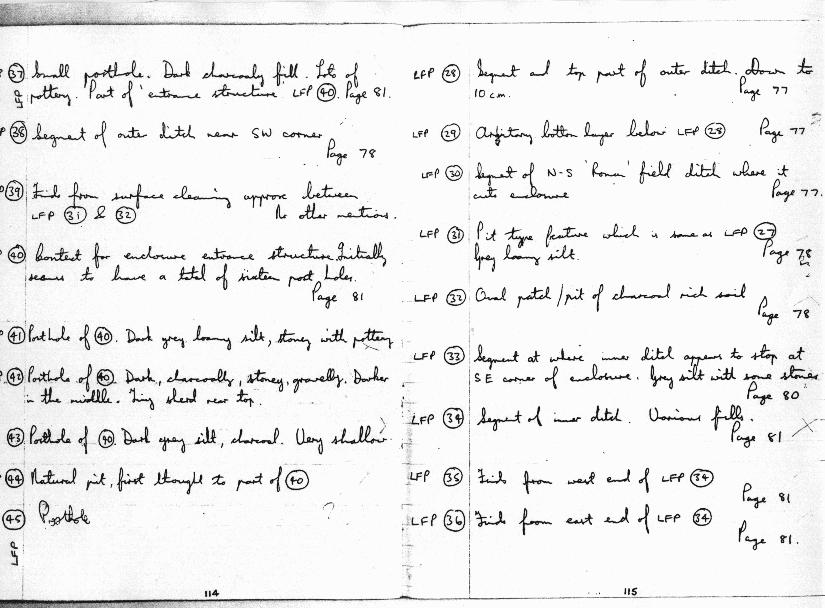 LFP (37) Small posthole. Dark charcoaly fill. Lots of
pottery. Part of 'entrance structure LFP (40). Page 81.
P (38) Segment of outer ditch near SW corner
Page 78
P (39) Finds from surface cleaning approx between
LFP (31) & (32) No other mentions.
P (40) Context for enclosure entrance structure. Initially
seems to have a total of sixteen post holes.
Page 81
P (41) Posthole of (40). Dark grey loamy silt, stoney with pottery
P. (42) Posthole of (40). Dark, charcoally, stoney, gravelly. Darker
in the middle. Tiny sherd near top.
(43) Posthole of (40). Dark grey silt, charcoal. Very shallow
P (44) Natural pit, first thought to part of (40)
(45) Posthole ?
LFP
114
LFP (28) Segment and top part of outer ditch. Down to
10 cm. Page 77
LFP (29) Arbitrary bottom layer below LFP (28) Page 77
LFP (30) Segment of N-S 'Roman' field ditch where it
cuts enclosure Page 77.
LFP (31) Pit type feature which is same as LFP (27)
Grey loamy silt. Page 78
LFP (32) Oval patch/pit of charcoal rich soil
Page 78
LFP (33) Segment at where inner ditch appears to stop at
SE corner of enclosure. Grey silt with some stones
Page 80
LFP (34) Segment of inner ditch. Various fills.
Page 81
LFP (35) Finds from west end of LFP (34)
Page 81
LFP (36) Finds from east end of LFP (34)
Page 81.
115